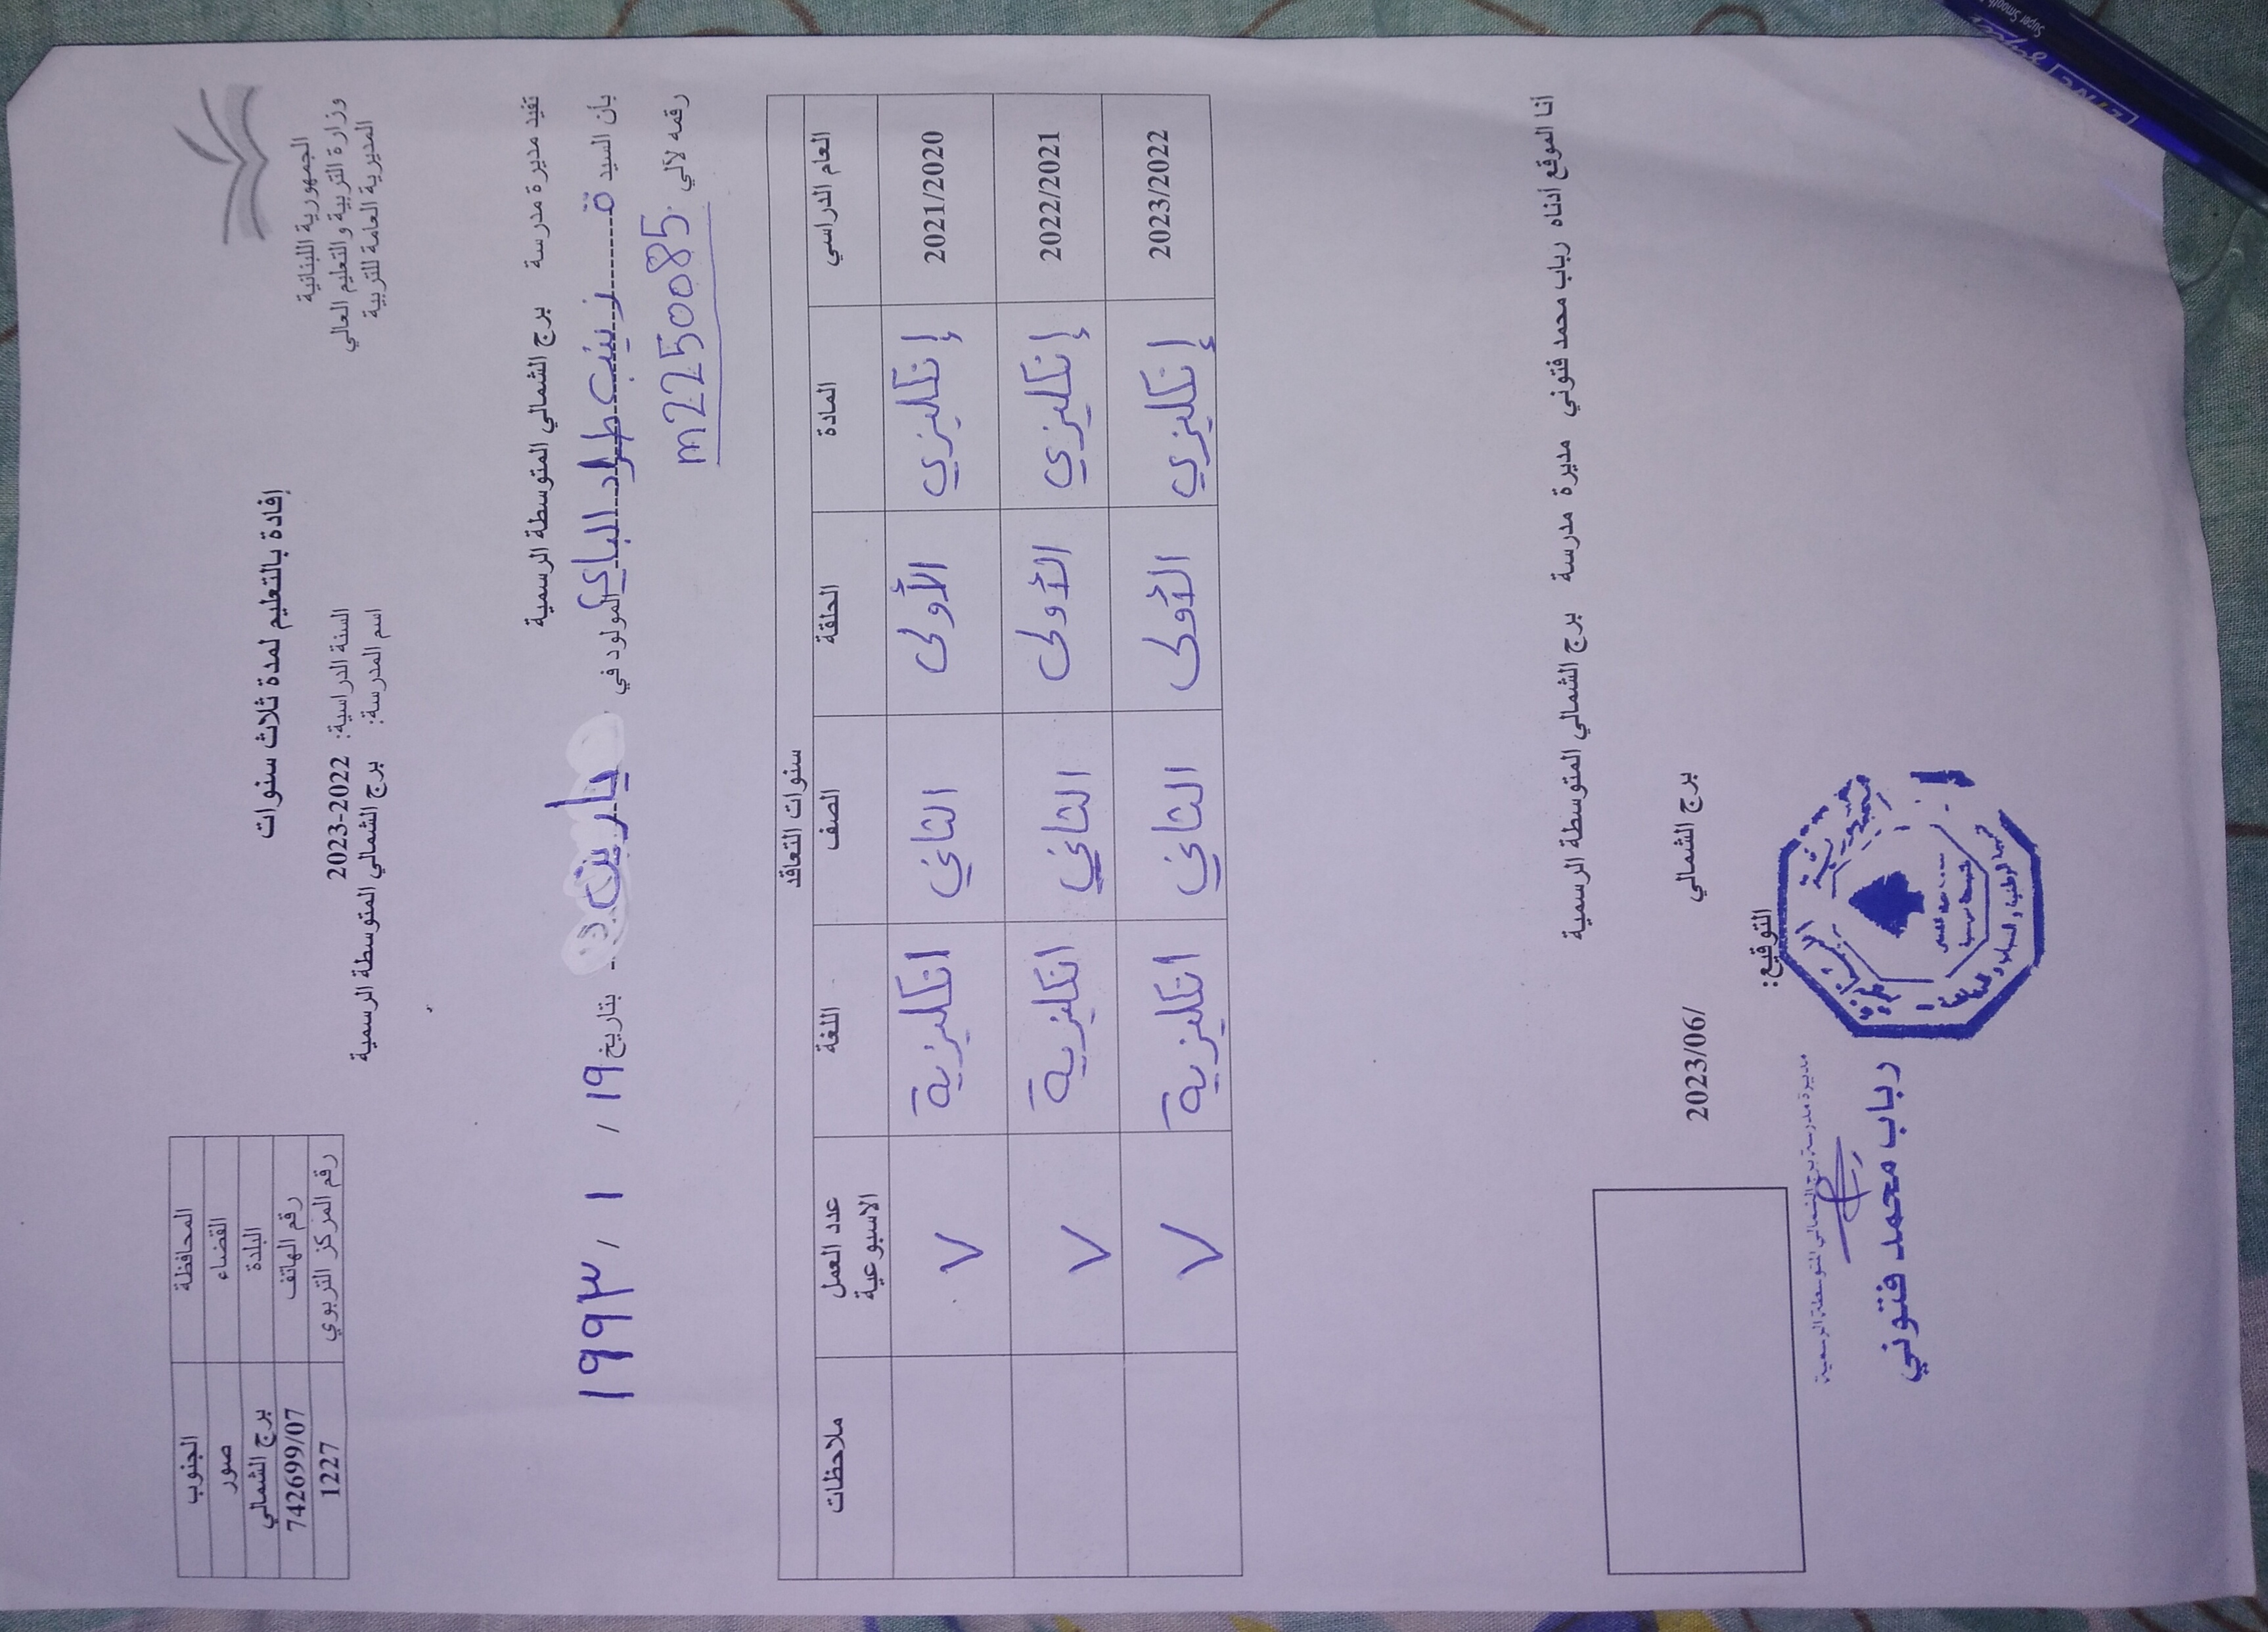 الجمهورية اللبنانية
وزارة التربية والتعليم العالي
المديرية العامة للتربية
إفادة بالتعليم لمدة ثلاث سنوات
السنة الدراسية: 2022-2023
اسم المدرسة: برج الشمالي المتوسطة الرسمية
المحافظة الجنوب
القضاء صور
البلدة برج الشمالي
رقم الهاتف 742699/07
رقم المركز التربوي 1227
تفيد مديرة مدرسة برج الشمالي المتوسطة الرسمية
بأن السيدة زينب طراد المولود في يارين بتاريخ ١٩ / ١ / ١٩٩٣
رقمه لآلي m2250085
سنوات التعاقد
العام الدراسي المادة الحلقة الصف اللغة عدد العمل الاسبوعية ملاحظات
2021/2020 إنكليزي الأولى الثاني انكليزية ٧
2022/2021 إنكليزي الأولى الثاني انكليزية ٧
2023/2022 إنكليزي الأولى الثاني انكليزية ٧
أنا الموقع أدناه رباب محمد فتوني مديرة مدرسة برج الشمالي المتوسطة الرسمية
برج الشمالي 2023/06/
التوقيع:
مديرة مدرسة برج الشمالي المتوسطة الرسمية
رباب محمد فتوني
Super Smooth